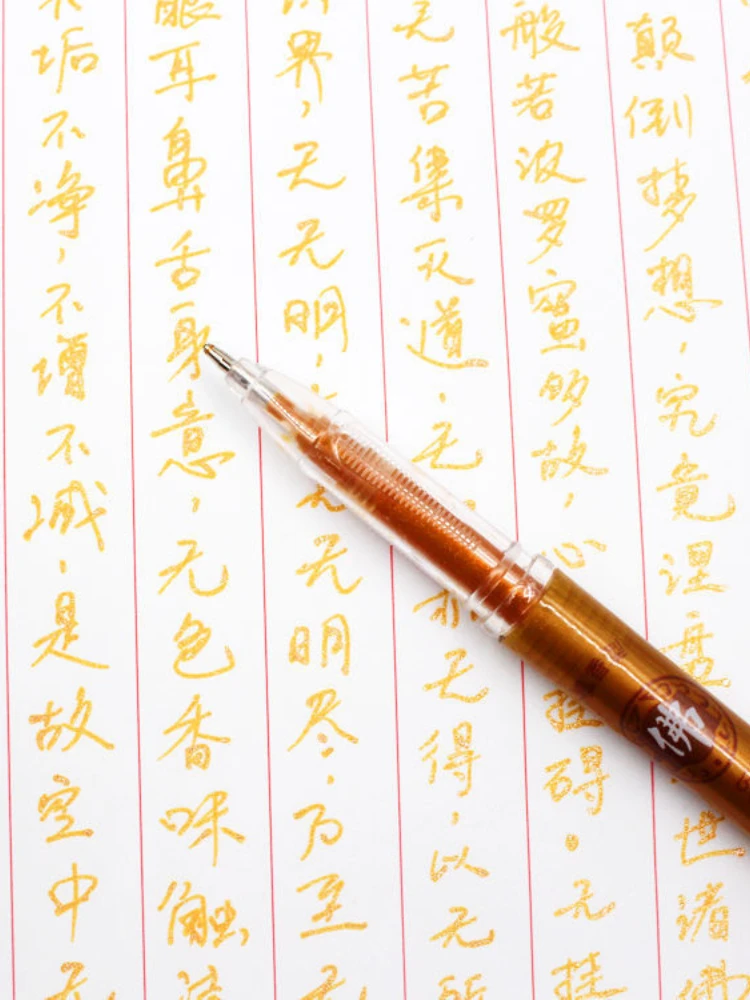 垢不净，不增不减，是故空中无
眼耳鼻舌身意，无色香味触法
界，无无明，无无明尽，乃至无
无苦集灭道，无亦无得，以无所
般若波罗蜜多故，心挂碍。无挂
颠倒梦想，究竟涅盘世诸佛
佛